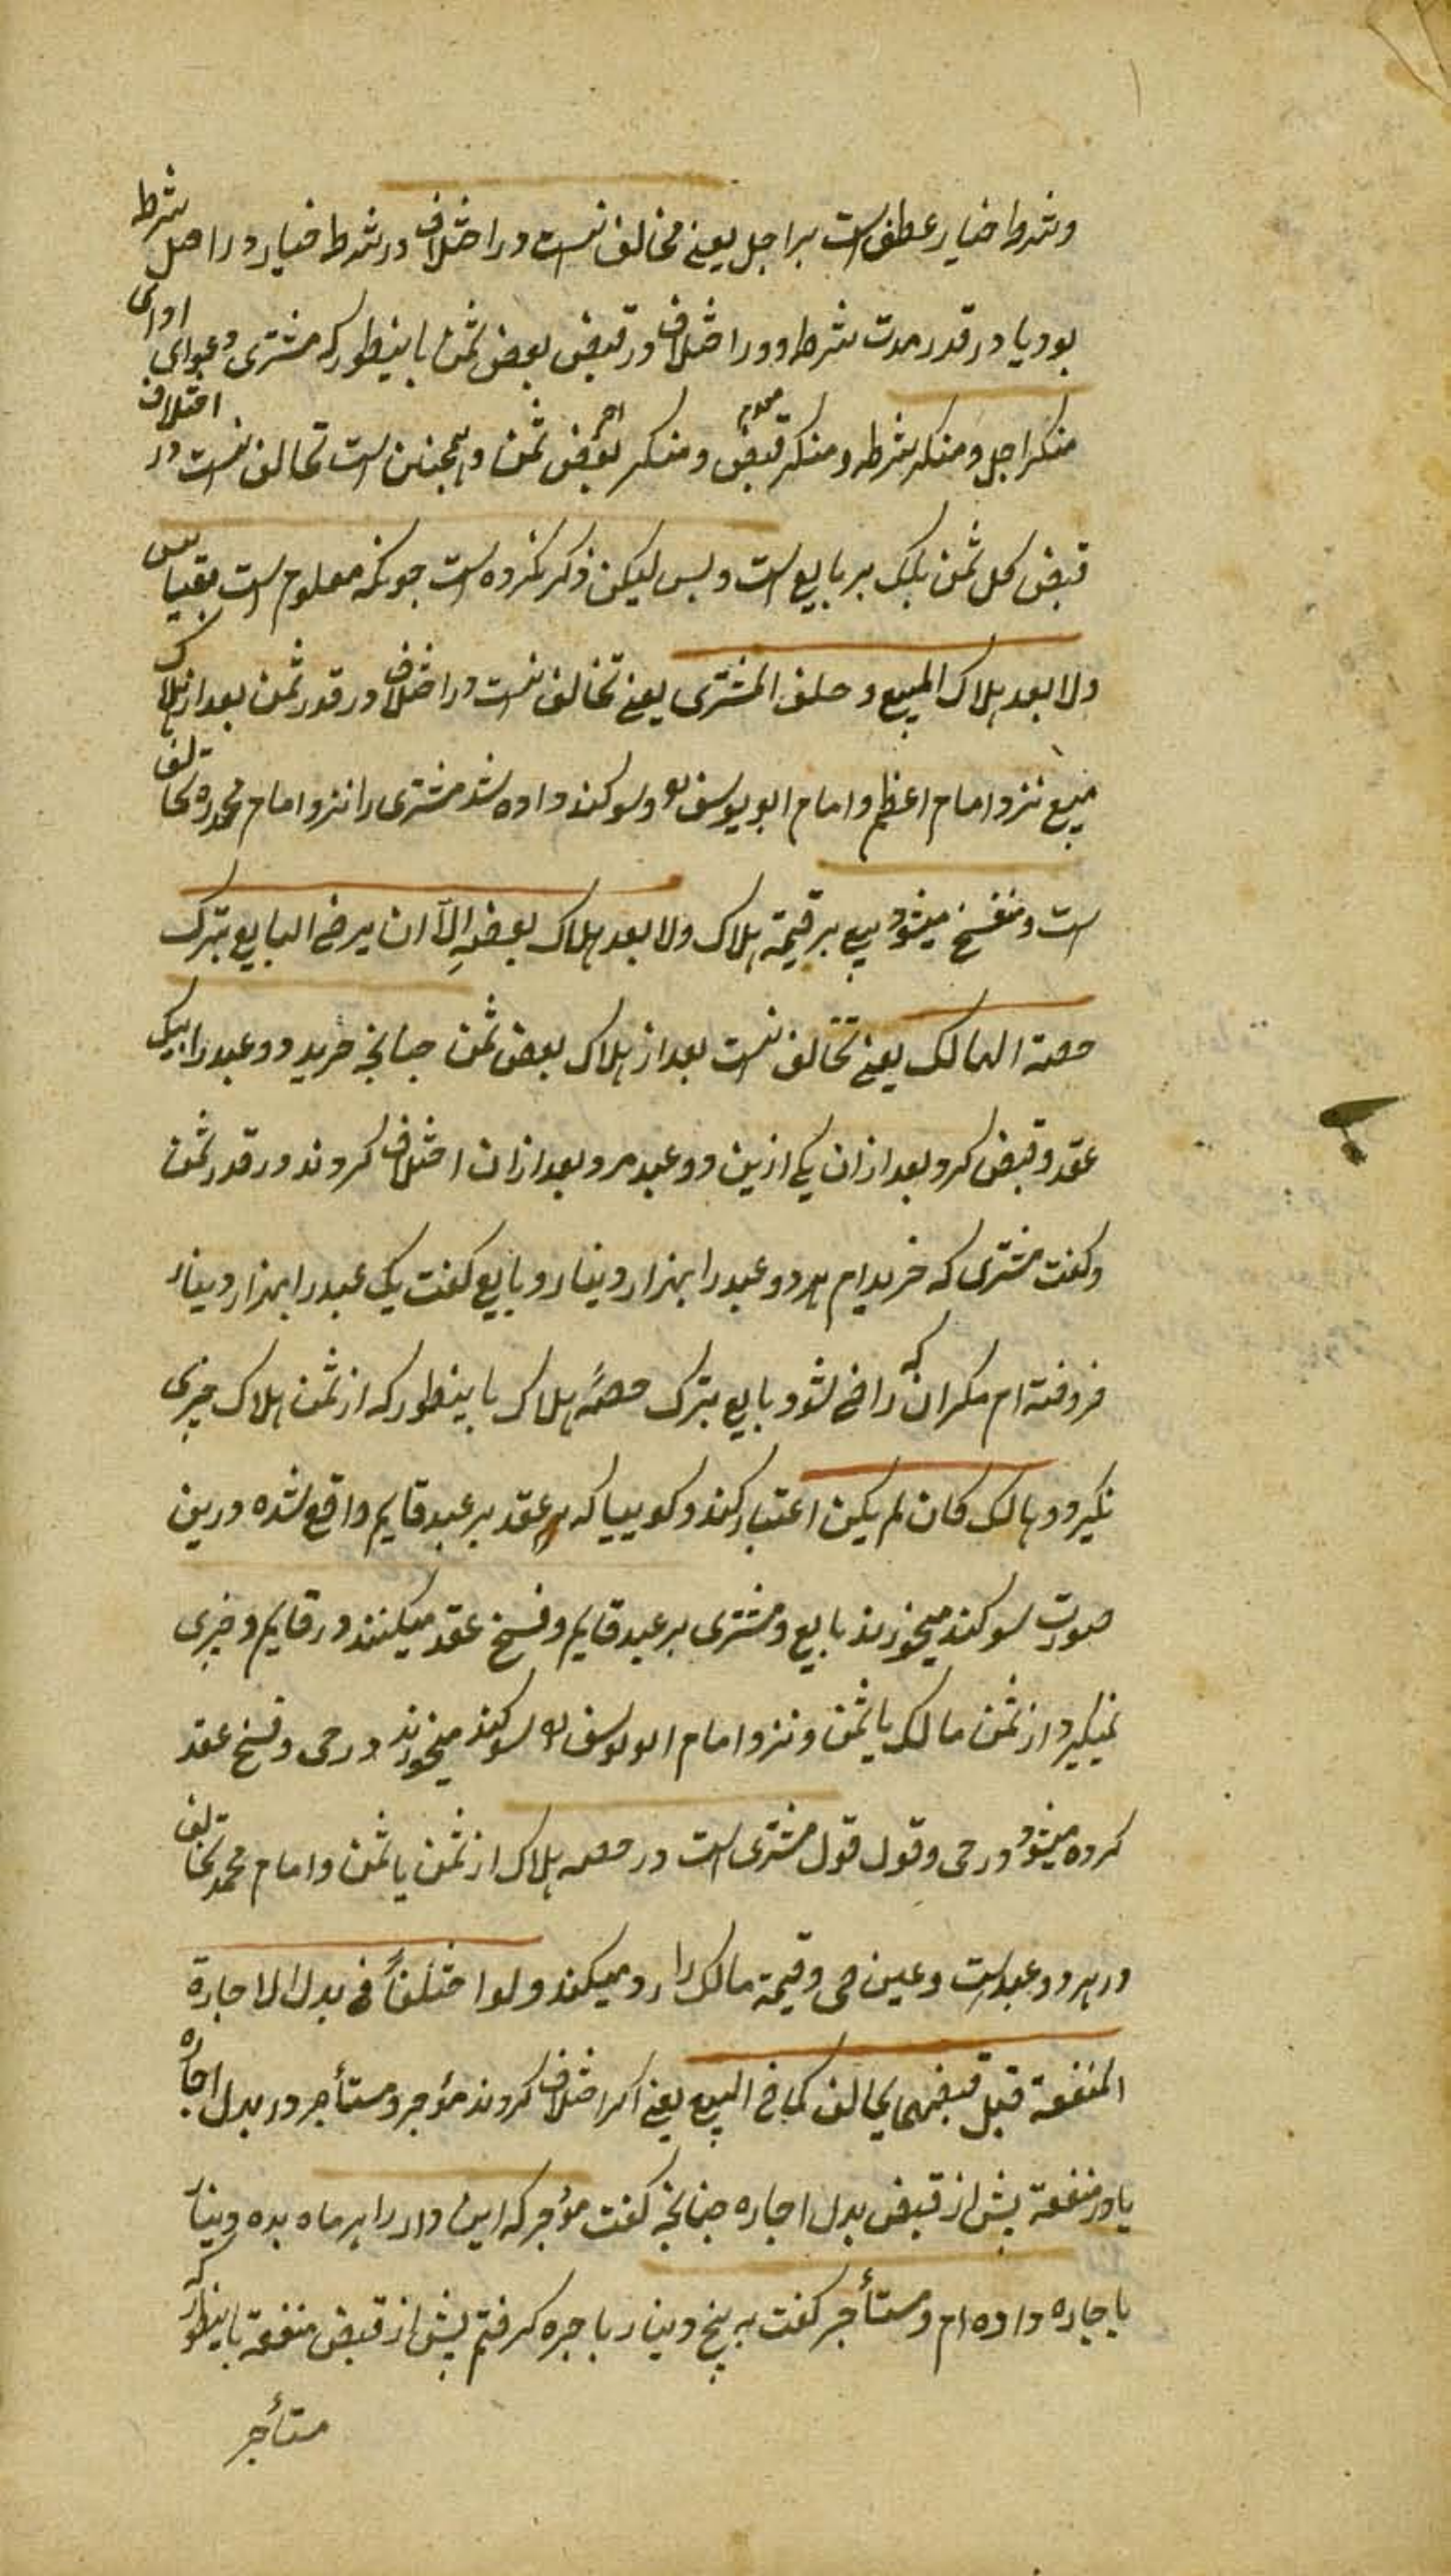 وشرط خیار عطف است بر اجل یعنی مخالف نیست در اختلاف در شرط خیار در اصل شرط
بود یا در قدر مدت شرط و در اختلاف در قبض بعض ثمن باینطور که مشتری دعوای ادای
منکر اجل و منکر شرط و منکر قبض و منکر بعض ثمن و همچنین است تحالف نیست در اختلاف
قبض کل ثمن بلک بر بایع است و بس لیکن ذکر نکرده است چونکه معلوم است بقیاس
ولا بعد هلاک المبیع و حلف المشتری یعنی تخالف نیست در اختلاف در قدر ثمن بعد از هلاک
مبیع نزد امام اعظم و امام ابو یوسف و سوکند داده شد مشتری را نزد امام محمد ره تحالف
است و منفسخ میشود بیع بر قیمة هلاک ولا بعد هلاک بعضه الا ان یرضی البایع بترک
حصة الهالک یعنی تخالف نیست بعد از هلاک بعض ثمن چنانچه خرید دو عبد را بیک
عقد و قبض کرد بعد ازان یکی ازین دو عبد مرد و بعد ازان اختلاف کردند در قدر ثمن
و کفت مشتری که خریدام هر دو عبد را بهزار دینار و بایع کفت یک عبد را بهزار دینار
فروخته ام مکر ان که راضی شود بایع بترک حصهٔ هلاک باینطور که از ثمن هلاک چیزی
نکیرد و هالک کان لم یکن اعتبار کند و کوییا که عقد بر عبد قایم واقع شده درین
صورت سوکند میخورند بایع و مشتری بر عبد قایم و فسخ عقد میکنند در قایم و چیزی
نمیکیرد از ثمن هالک یا ثمن و نزد امام ابو یوسف سوکند میخورند در حی و فسخ عقد
کرده میشود در حی و قول قول مشتری است در حصه هلاک از ثمن یا ثمن و امام محمد تحالف
در هر دو عبد است و عین حی و قیمة هالک را رد میکند ولو اختلفا فی بدل الاجارة
المنفعة قبل قبضهما تحالف کما فی البیع یعنی اکر اختلاف کردند مؤجر و مستأجر در بدل اجاره
یا در منفعة پیش از قبض بدل اجاره چنانچه کفت مؤجر که این دار را هر ماه بده دینار
باجاره داده ام و مستأجر کفت به پنج دینار باجره کرفتم پیش از قبض منفعة باینطور که
مستأجر